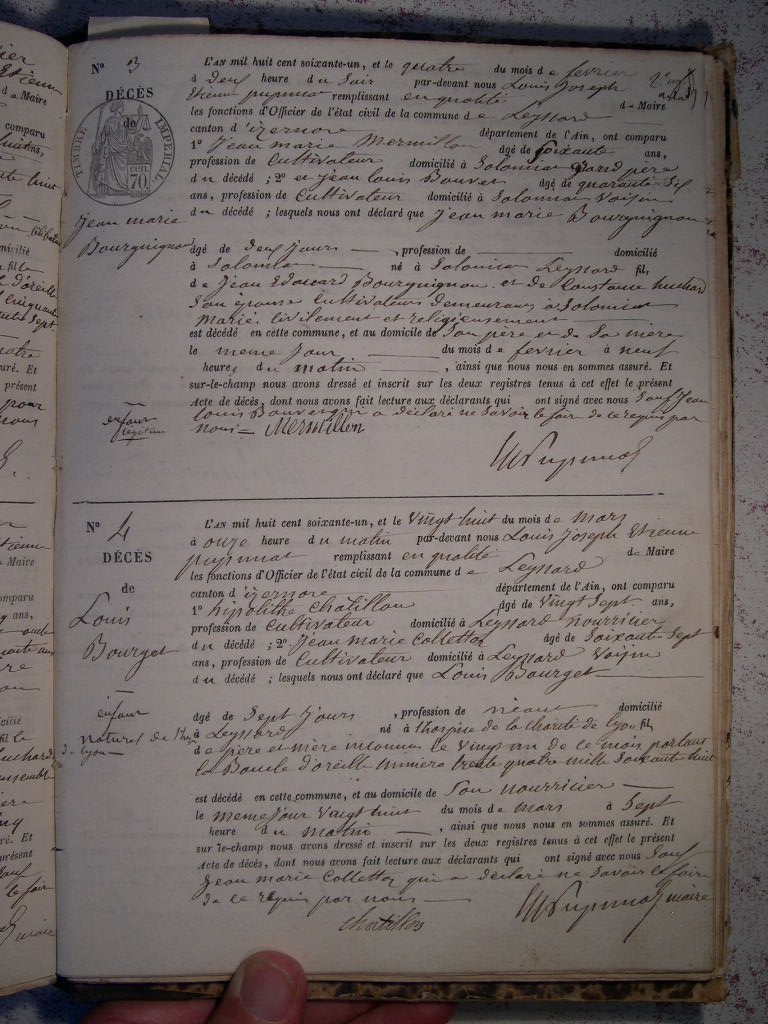 N° 3
DÉCÈS
de
TIMBRE IMPÉRIAL
CEN. 70.
Jean marie
Bourguignon
enfant
légitime
L'AN mil huit cent soixante-un, et le quatre du mois de fevrier
à deux heure du Soir par-devant nous Louis Joseph
Etienne pupunat remplissant en qualité de Maire
les fonctions d'Officier de l'état civil de la commune de Leyssard
canton d'izernore département de l'Ain, ont comparu
1° Jean marie Mermillon âgé de Soixante ans,
profession de Cultivateur domicilié à Solomiat grand père
du décédé ; 2° et Jean louis Bouvet âgé de quarante Six
ans, profession de Cultivateur domicilié à Solomiat Voisin
du décédé ; lesquels nous ont déclaré que Jean marie Bourguignon
âgé de Deux Jours , profession de domicilié
à Solomiat né à Solomiat Leyssard fil,
de Jean Edouard Bourguignon et de Constance huchard
Son épouse Cultivateurs demeurans à Solomiat
Marié, Civilement et religieusement
est décédé en cette commune, et au domicile de Son père et de Sa mère
le meme Jour du mois de fevrier à neuf
heures du matin , ainsi que nous nous en sommes assuré. Et
sur-le-champ nous avons dressé et inscrit sur les deux registres tenus à cet effet le présent
Acte de décès, dont nous avons fait lecture aux déclarants qui ont signé avec nous Sauf Jean
louis Bouvet qui a déclaré ne Savoir le faire de ce requis par
nous Mermillon
N° 4
DÉCÈS
de
Louis
Bourget
enfant
naturel de
lyon
L'AN mil huit cent soixante-un, et le Vingt huit du mois de mars
à onze heure du matin par-devant nous Louis Joseph Etienne
pupunat remplissant en qualité de Maire
les fonctions d'Officier de l'état civil de la commune de Leyssard
canton d'izernore département de l'Ain, ont comparu
1° hipolithe Châtillon âgé de Vingt Sept ans,
profession de Cultivateur domicilié à Leyssard nourricier
du décédé ; 2° Jean marie Collettaz âgé de Soixante Sept
ans, profession de Cultivateur domicilié à Leyssard Voisin
du décédé ; lesquels nous ont déclaré que Louis Bourget
âgé de Sept Jours , profession de néant domicilié
à Leyssard né à l'hospice de la charité de lyon fil,
de père et mère inconnus le Vingt un de ce mois portant
la Boucle d'oreille numéro trente quatre mille Soixante huit
est décédé en cette commune, et au domicile de Son nourricier
le meme Jour Vingt huit du mois de mars à Sept
heure du matin , ainsi que nous nous en sommes assuré. Et
sur-le-champ nous avons dressé et inscrit sur les deux registres tenus à cet effet le présent
Acte de décès, dont nous avons fait lecture aux déclarants qui ont signé avec nous Sauf
Jean marie Collettaz qui a déclaré ne Savoir le faire
de ce requis par nous
Pupunat maire
Chatillon